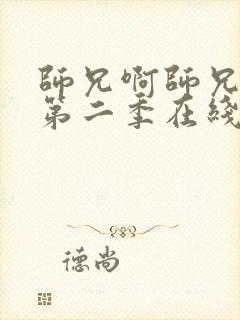 師兄啊師兄
第二季在綫
德尚